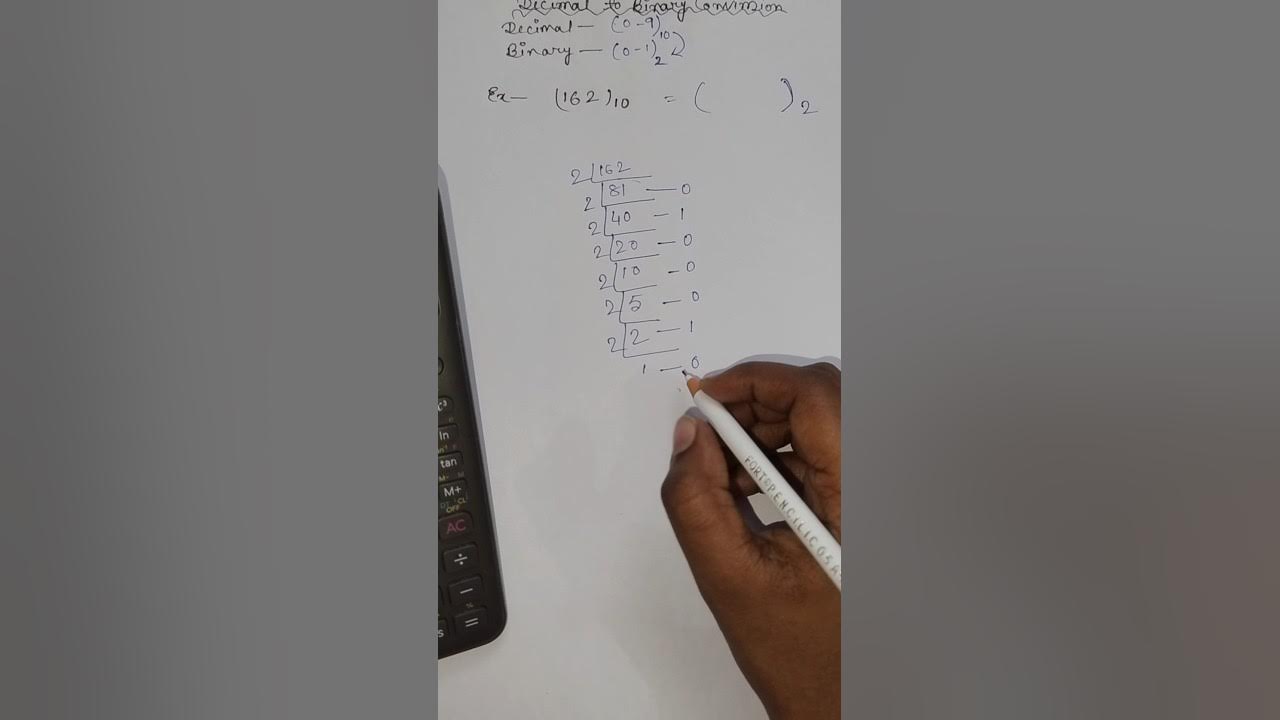 Decimal to Binary Conversion
Decimal — (0-9)10
Binary — (0-1)2
Ex — (162)10 = ( )2
2 162
2 81 — 0
2 40 — 1
2 20 — 0
2 10 — 0
2 5 — 0
2 2 — 1
1 — 0
ln
tan
M+
OFF
AC
÷
−
%
=
FORTEPENCILICOSA